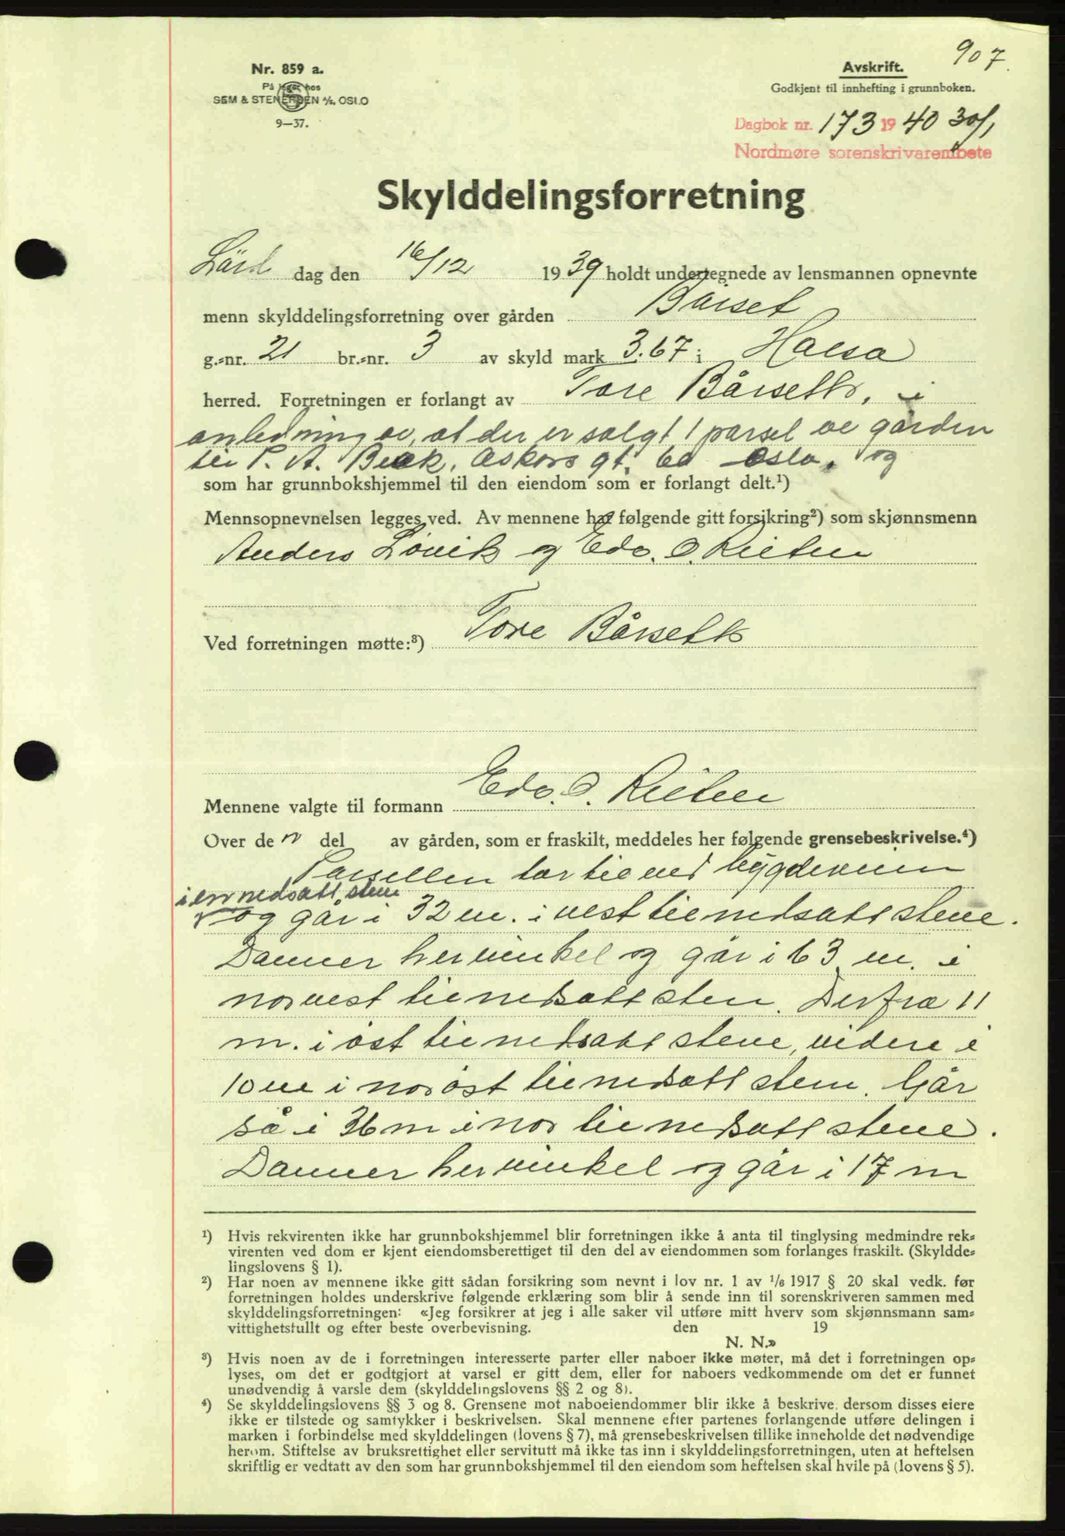 907.
Nr. 859 a.
På lager hos
SEM & STENERSEN A/S, OSLO
9—37.
Avskrift.
Godkjent til innhefting i grunnboken.
Dagbok nr. 173 1940 30/1
Nordmøre sorenskrivarembete
Skylddelingsforretning
Lörd dag den 16/12 1939 holdt undertegnede av lensmannen opnevnte
menn skylddelingsforretning over gården Bårset
g.=nr. 21 br.=nr. 3 av skyld mark 3.67 i Halsa
herred. Forretningen er forlangt av Tore Bårseth, i
anledning av, at der er solgt 1 parsel av gården
til P. A. Beck, Askers gt. 6d Oslo, og
som har grunnbokshjemmel til den eiendom som er forlangt delt.¹)
Mennsopnevnelsen legges ved. Av mennene har følgende gitt forsikring²) som skjønnsmenn
Anders Løvik og Edv. O. Reiten
Ved forretningen møtte:³) Tore Bårseth
Mennene valgte til formann Edv. O. Reiten
Over den del av gården, som er fraskilt, meddeles her følgende grensebeskrivelse.⁴)
Parsellen tar til ved bygdeveien
i en nedsatt sten
og går i 32 m. i vest til nedsatt stene.
Danner her vinkel og går i 63 m. i
norvest til nedsatt sten. Derfra 11
m. i öst til nedsatt stene, videre i
10 m i noröst til nedsatt sten. Går
så i 36 m i nor til nedsatt stene.
Danner her vinkel og går i 17 m
¹) Hvis rekvirenten ikke har grunnbokshjemmel blir forretningen ikke å anta til tinglysing medmindre rek=
virenten ved dom er kjent eiendomsberettiget til den del av eiendommen som forlanges fraskilt. (Skyldde=
lingslovens § 1).
²) Har noen av mennene ikke gitt sådan forsikring som nevnt i lov nr. 1 av 1/6 1917 § 20 skal vedk. før
forretningen holdes underskrive følgende erklæring som blir å sende inn til sorenskriveren sammen med
skylddelingsforretningen: «Jeg forsikrer at jeg i alle saker vil utføre mitt hverv som skjønnsmann sam=
vittighetsfullt og efter beste overbevisning. den 19
N. N.»
³) Hvis noen av de i forretningen interesserte parter eller naboer ikke møter, må det i forretningen op=
lyses, om det er godtgjort at varsel er gitt dem, eller for naboers vedkommende om det er funnet
unødvendig å varsle dem (skylddelingslovens §§ 2 og 8).
⁴) Se skylddelingslovens §§ 3 og 8. Grensene mot naboeiendommer blir ikke å beskrive, dersom disses eiere
ikke er tilstede og samtykker i beskrivelsen. Skal mennene efter partenes forlangende utføre delingen i
marken i forbindelse med skylddelingen (lovens § 7), må grensebeskrivelsen tillike inneholde det nødvendige
herom. Stiftelse av bruksrettighet eller servitutt må ikke tas inn i skylddelingsforretningen, uten at heftelsen
skriftlig er vedtatt av den som har grunnbokshjemmel til den eiendom som heftelsen skal hvile på (lovens § 5).